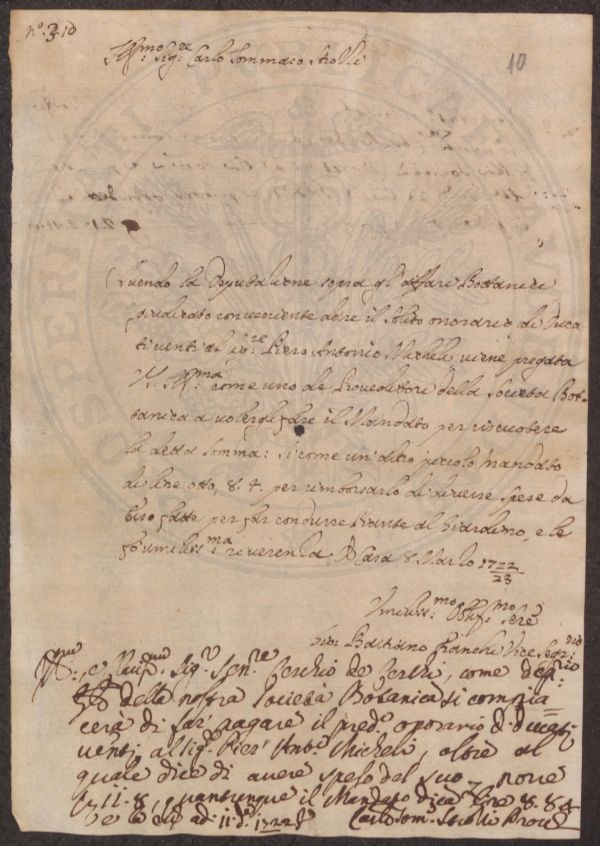 nº. 310
10
Ill:mo Sig:re Carlo Tommaso Strozzi
Avendo la Deputazione sopra gl'affari Bottanici
giudicato conveniente dare il solito onorario di Duca
ti venti al Sig:re Piero Antonio Micheli viene pregata
V. S. Ill:ma come uno de Proveditori della Società Bot-
tanica a volergli fare il Mandato per riscuotere
la detta somma: si come un'altro piccolo mandato
di lire otto, 8. 4. per rimborsarlo di diverse spese da
esso fatte per far condurre Piante al Giardino, e le
fo umiliss:ma riverenza Di Casa 8 Marzo 1722/23
Umiliss:mo Obblig:mo Ser:e
Gio: Bastiano Franchi Vice Segr:rio
Sig:r Sen:re Cerchio de Cerchi, come dep:rio
della nostra Società Botanica si compia=
cerà di far pagare il pred:o onorario di ducati
venti al Sig:r Pier Ant:o Micheli, oltre al
quale dice di avere speso del suo
11.8, quantunque il Mandato dica lire 8.8.4
adi 11 d:o 1722
Carlo Tom: Strozzi Proved: